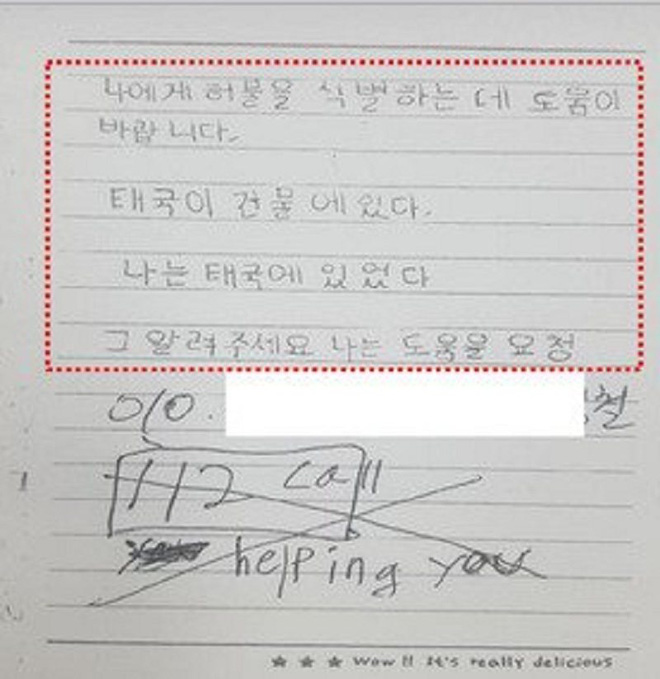 나에게 허물을 식별하는 데 도움이
바랍니다.
태국이 건물에 있다.
나는 태국에 있었다
그 알려주세요 나는 도움을 요청
010. 철
112 call
helping you
★ ★ ★ Wow!! It's really delicious